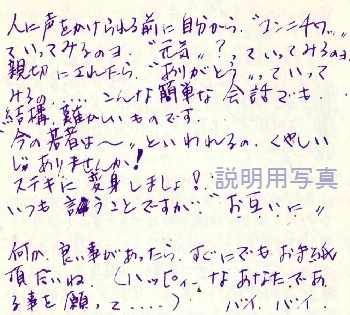 人に声をかけられる前に自分から、“コンニチワ„
ていってみるのヨ。“元気„？、ていってみるのヨ
親切にされたら、“ありがとう„、ていって
みるの……こんな簡単な会話でも
結構、難かしいものです。
今の若者は〜„といわれるの、くやしい
じゃありませんか！
ステキに変身しましょ！
説明用写真
いつも言うことですが…“お互いに„
何か、良い事があったら、すぐにでもお手紙
頂だいね。（ハッピィーなあなたであ
る事を願って……）バイ、バイ、